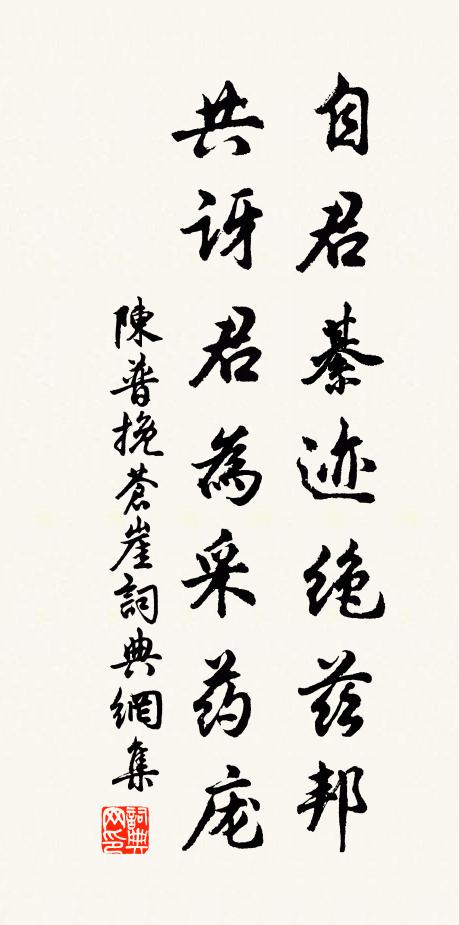 自君綦迹绝兹邦
共讶君为采药庞
陳普挽蒼崖詞典網集
詞典网印